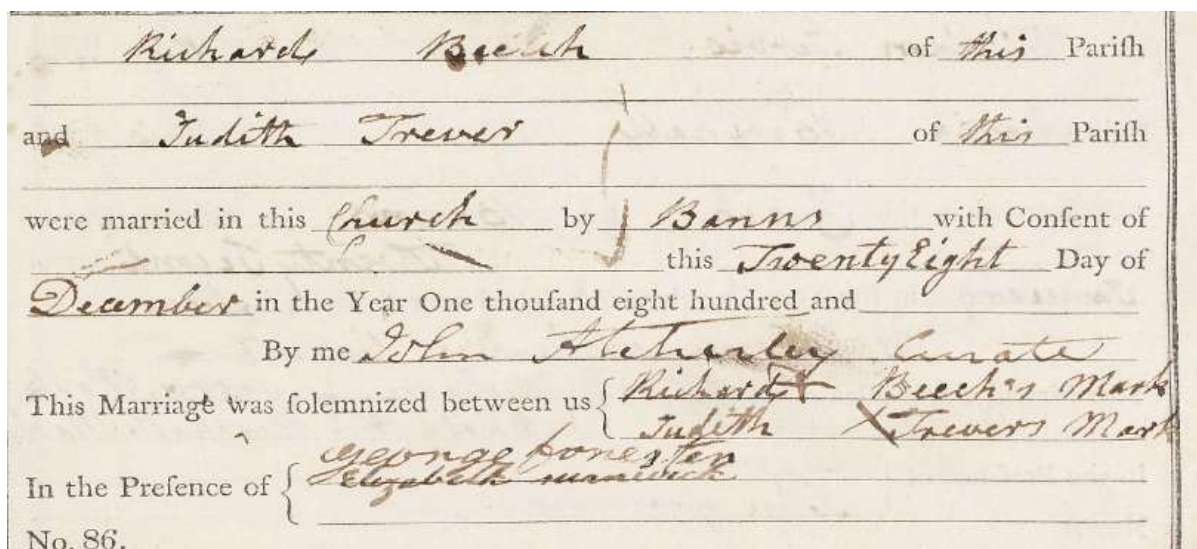 Richard Beech of this Pariſh
and Judith Trever of this Pariſh
were married in this Church by Banns with Conſent of
this Twenty Eight Day of
December in the Year One thouſand eight hundred and
By me John Atcherley Curate
This Marriage was ſolemnized between us { Richard + Beech's Mark
Judith X Trevers Mark
In the Preſence of { George forester
Elizabeth
No. 86.